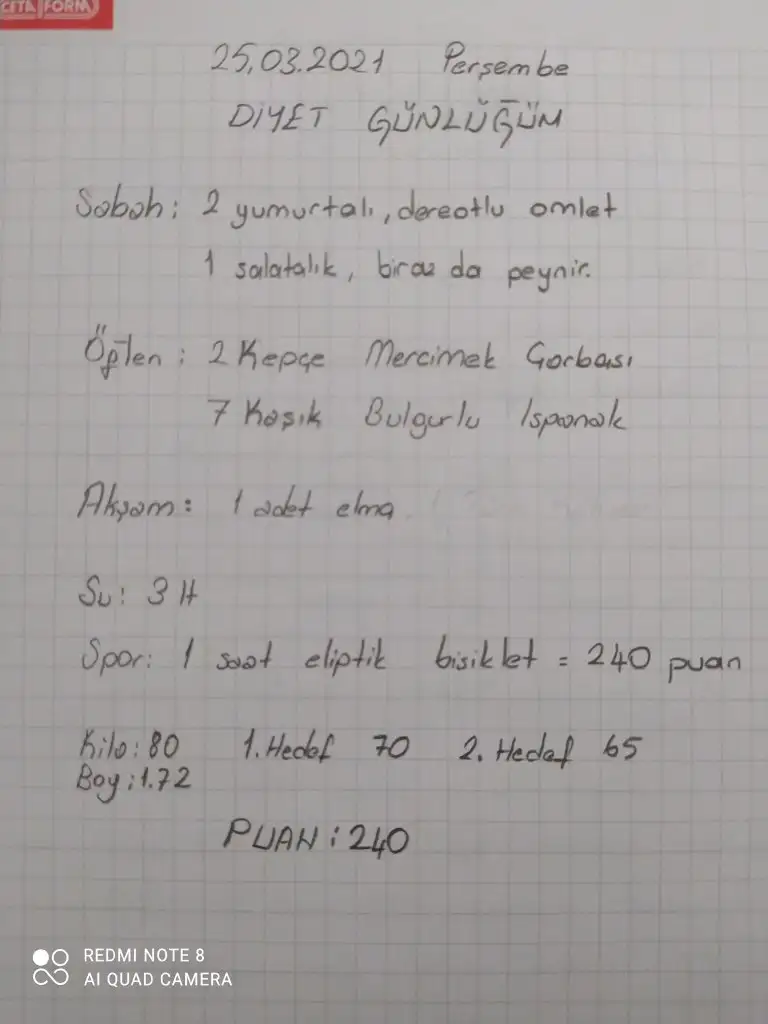 ÇETA FORM
25.03.2021 Perşembe
DİYET GÜNLÜĞÜM
Sabah: 2 yumurtalı, dereotlu omlet
1 salatalık, biraz da peynir.
Öğlen: 2 Kepçe Mercimek Çorbası
7 Kaşık Bulgurlu Ispanak
Akşam: 1 adet elma
Su: 3 lt
Spor: 1 saat eliptik bisiklet = 240 puan
Kilo: 80 1. Hedef 70 2. Hedef 65
Boy: 1.72
PUAN: 240
REDMI NOTE 8
AI QUAD CAMERA